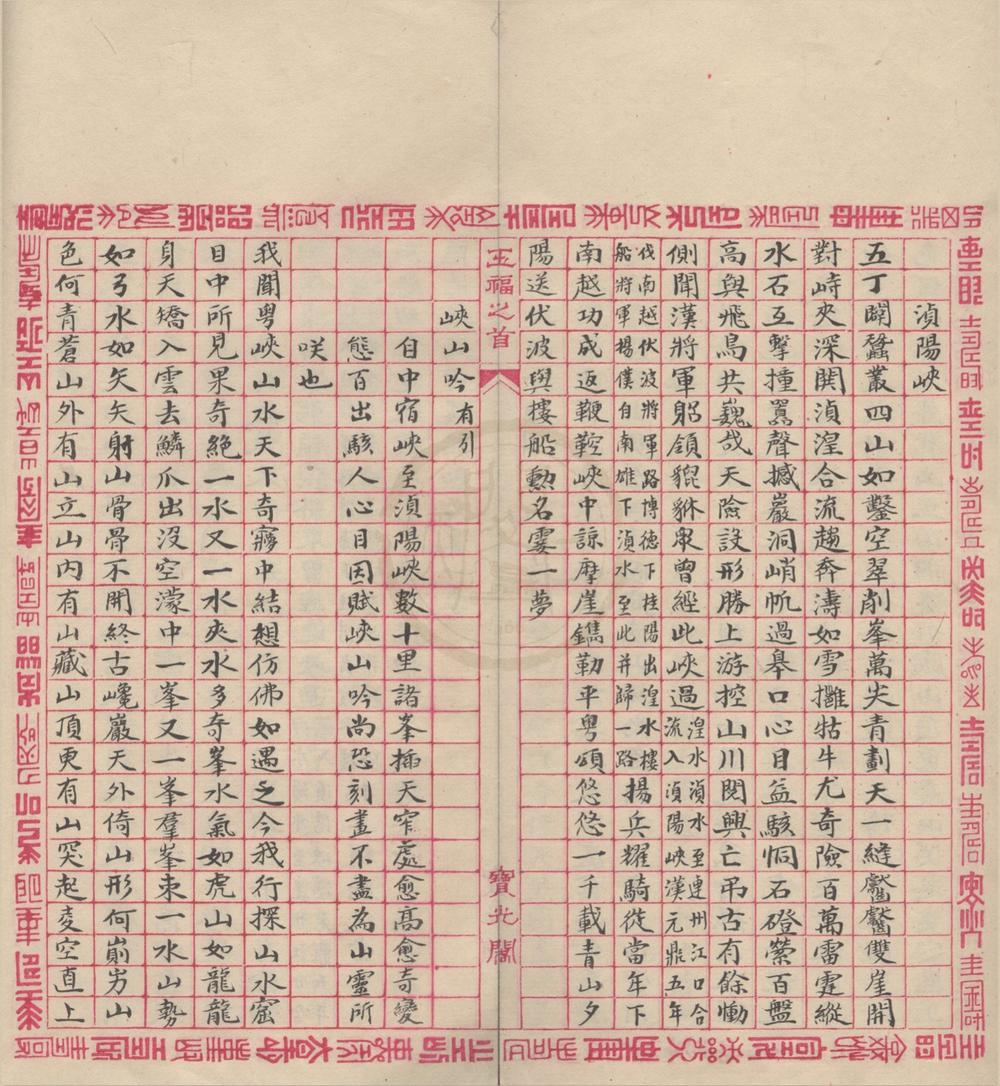 湞陽峽
五丁闢蠶叢四山如鑿空翠削峯萬尖青劃天一縫齾齾雙崖開
對峙夾深閧湞湟合流趨奔濤如雪攤牯牛尤奇險百萬雷霆縱
水石互擊撞聲撼巖洞峭帆過皋口心目益駭恫石磴縈百盤
高與飛鳥共巍哉天險設形勝上游控山川閱興亡弔古有餘慟
側聞漢將軍躬領貔貅眾曾經此峽過湟水湞水至連州江口合流入湞陽峽漢元鼎五年
伐南越伏波將軍路博德下桂陽出湟水樓船將軍揚僕自南雄下湞水至此并歸一路揚兵耀騎從當年下
南越功成返鞭鞚峽中諒摩崖鐫勒平粤頌悠悠一千載青山夕
陽送伏波與樓船勲名霎一夢
五福之首
寶光閣
峽山吟有引
自中宿峽至湞陽峽數十里諸峯插天窄處愈高愈奇變
態百出駭人心目因賦峽山吟尚恐刻畫不盡為山靈所
咲也
我聞粤峽山水天下奇寤中結想仿佛如遇之今我行探山水窟
目中所見果奇絶一水又一水夾水多奇峯水氣如虎山如龍龍
身天矯入雲去鱗爪出沒空濛中一峯又一峯羣峯束一水山勢
如弓水如矢矢射山骨骨不開終古巉巖天外倚山形何崩屴山
色何青蒼山外有山立山內有山藏山頂更有山突起夌空直上